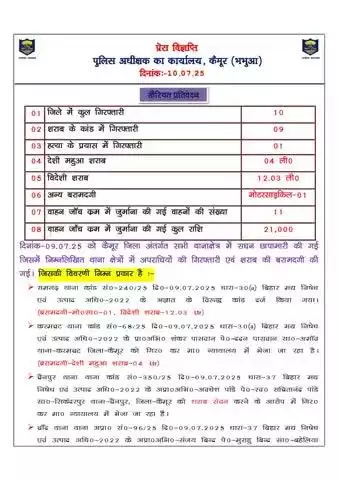 प्रेस विज्ञप्ति
पुलिस अधीक्षक का कार्यालय, कैमूर (भभुआ)
दिनांकः-10.07.25
सीरियत प्रतिवेदन
01 जिले में कुल गिरफ्तारी 10
02 शराब के कांड में गिरफ्तारी 09
03 हत्या के प्रयास में गिरफ्तारी 01
04 देशी महुआ शराब 04 ली0
05 विदेशी शराब 12.03 ली0
06 अन्य बरामदगी मोटरसाइकिल-01
07 वाहन जाँच क्रम में जुर्माना की गई वाहनों की संख्या 11
08 वाहन जाँच क्रम में जुर्माना की गई कुल राशि 21,000
दिनांक-09.07.25 को कैमूर जिला अंतर्गत सभी थानाक्षेत्र में सघन छापामारी की गई
जिसमें निम्नलिखित थाना क्षेत्रों में अपराधियों की गिरफ्तारी एवं शराब की बरामदगी की
गई। जिसकी विवरणी निम्न प्रकार है :-
➢ रामगढ़ थाना कांड सं0-240/25 दि0-09.07.2025 धारा-30(a) बिहार मध निषेध
एवं उत्पाद अधि0-2022 के अज्ञात के विरुद्ध कांड दर्ज किया गया।
(बरामदगी-मो0सा0-01, विदेशी शराब-12.03 ली)
➢ करमचट थाना कांड सं0-68/25 दि0-09.07.2025 धारा-30(a) बिहार मध निषेध
एवं उत्पाद अधि0-2022 के प्रा0अभि0 शंकर पासवान पे0- पासवान सा0-अमाँव
थाना-करमचट जिला-कैमूर को गिर0 कर मा0 न्यायालय में भेजा जा रहा है।
(बरामदगी-देशी महुआ शराब-04 ली)
➢ चैनपुर थाना कांड सं0-350/25 दि0-09.07.2025 धारा-37 बिहार मध
निषेध एवं उत्पाद अधि0-2022 के अप्रा0अभि0-अवधेश पांडे पे0-स्व0 सचितानंद पांडे
सा0-सिकंदरपुर थाना-चैनपुर, जिला-कैमूर को शराब सेवन करने के आरोप में गिर0
कर मा0 न्यायालय में भेजा जा रहा है।
➢ चाँद थाना कांड अप्रा0 सं0-96/25 दि0-09.07.2025 धारा-37 बिहार मध निषेध
एवं उत्पाद अधि0-2022 के अप्रा0अभि0-संजय बिन्द पे0- बिन्द सा0-बहेलिया